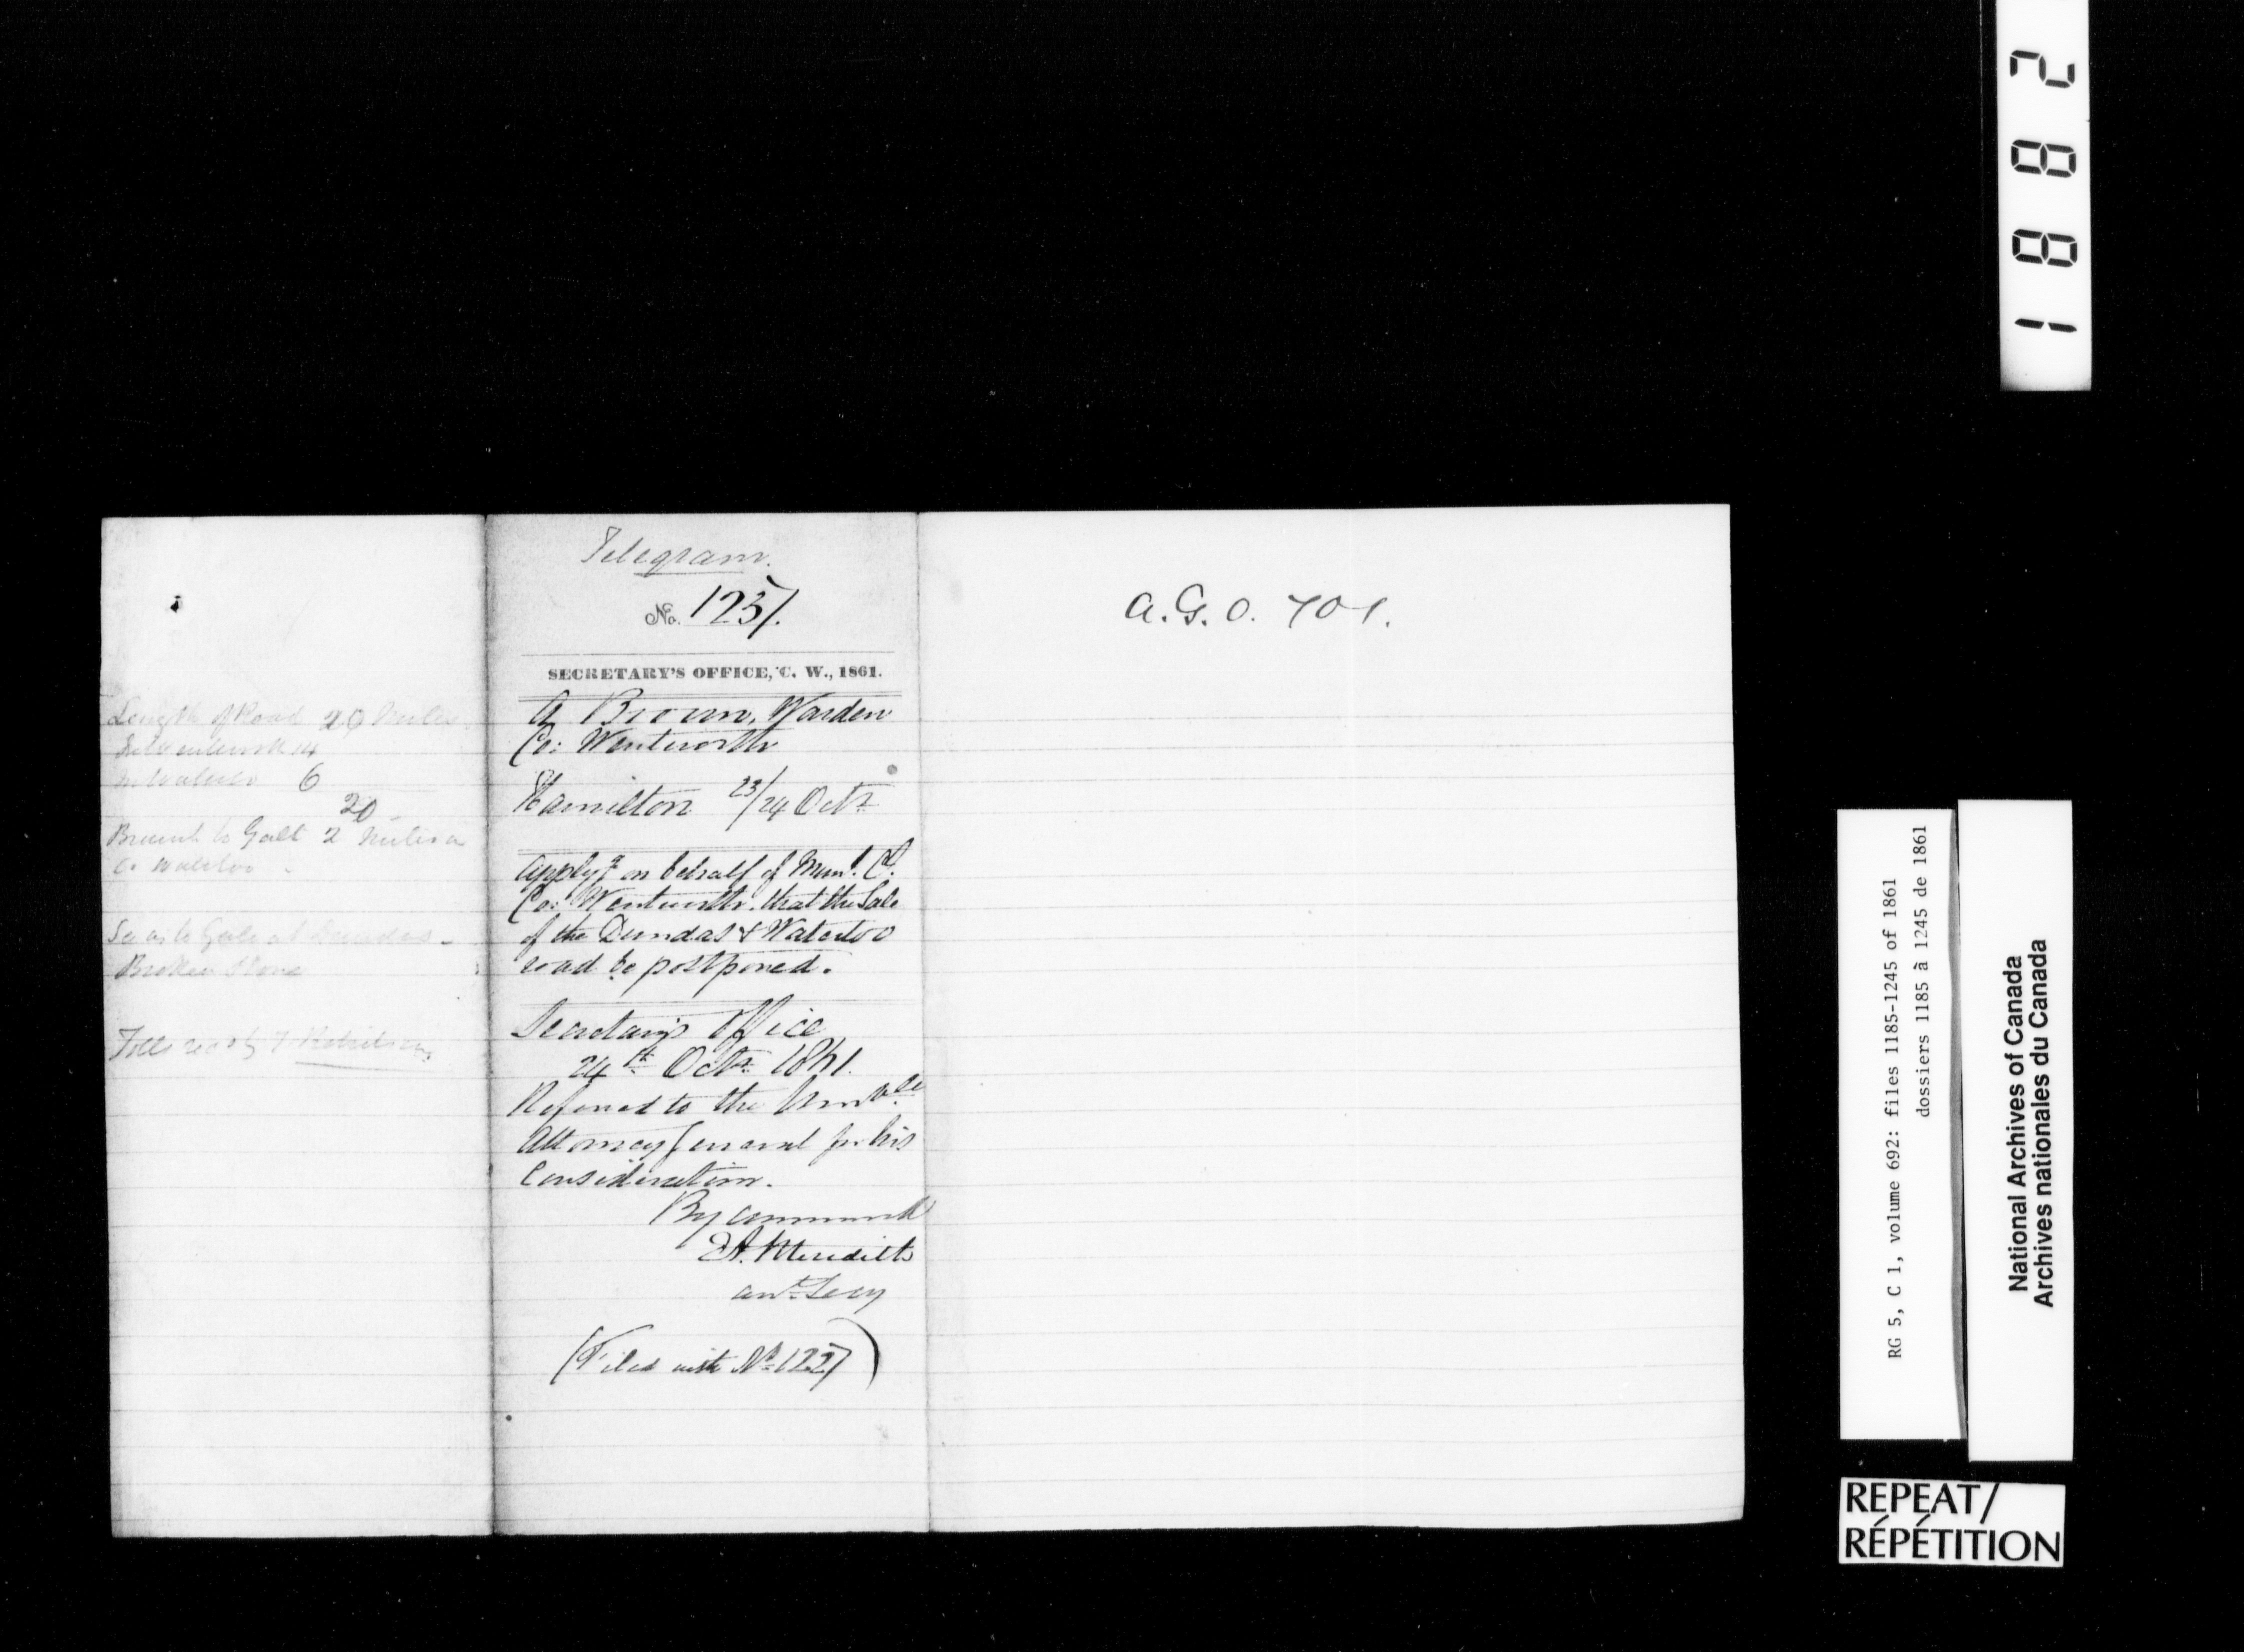 Length of Road 20 Miles
In Wentworth 14
In Waterloo 6
20
Branch to Galt 2 Miles in
Co Waterloo
Broken Stone
Telegram.
No. 1237.
SECRETARY'S OFFICE, C. W., 1861.
A Brown, Warden
Co: Wentworth
Hamilton 23/24 Octr
Applyg on behalf of Munl. Cl.
Co: Wentworth. that the Sale
of the Dundas & Waterloo
road be postponed.
Secretary's Office
24th Octr. 1861.
Referred to the Honble
Attorney General for his
Consideration.
By Command
E.A. Meredith
Asst. Secy
(Filed with No. 1227)
A.G.O. 701.
1882
RG 5, C 1, volume 692: files 1185-1245 of 1861
dossiers 1185 à 1245 de 1861
National Archives of Canada
Archives nationales du Canada
REPEAT/
RÉPÉTITION